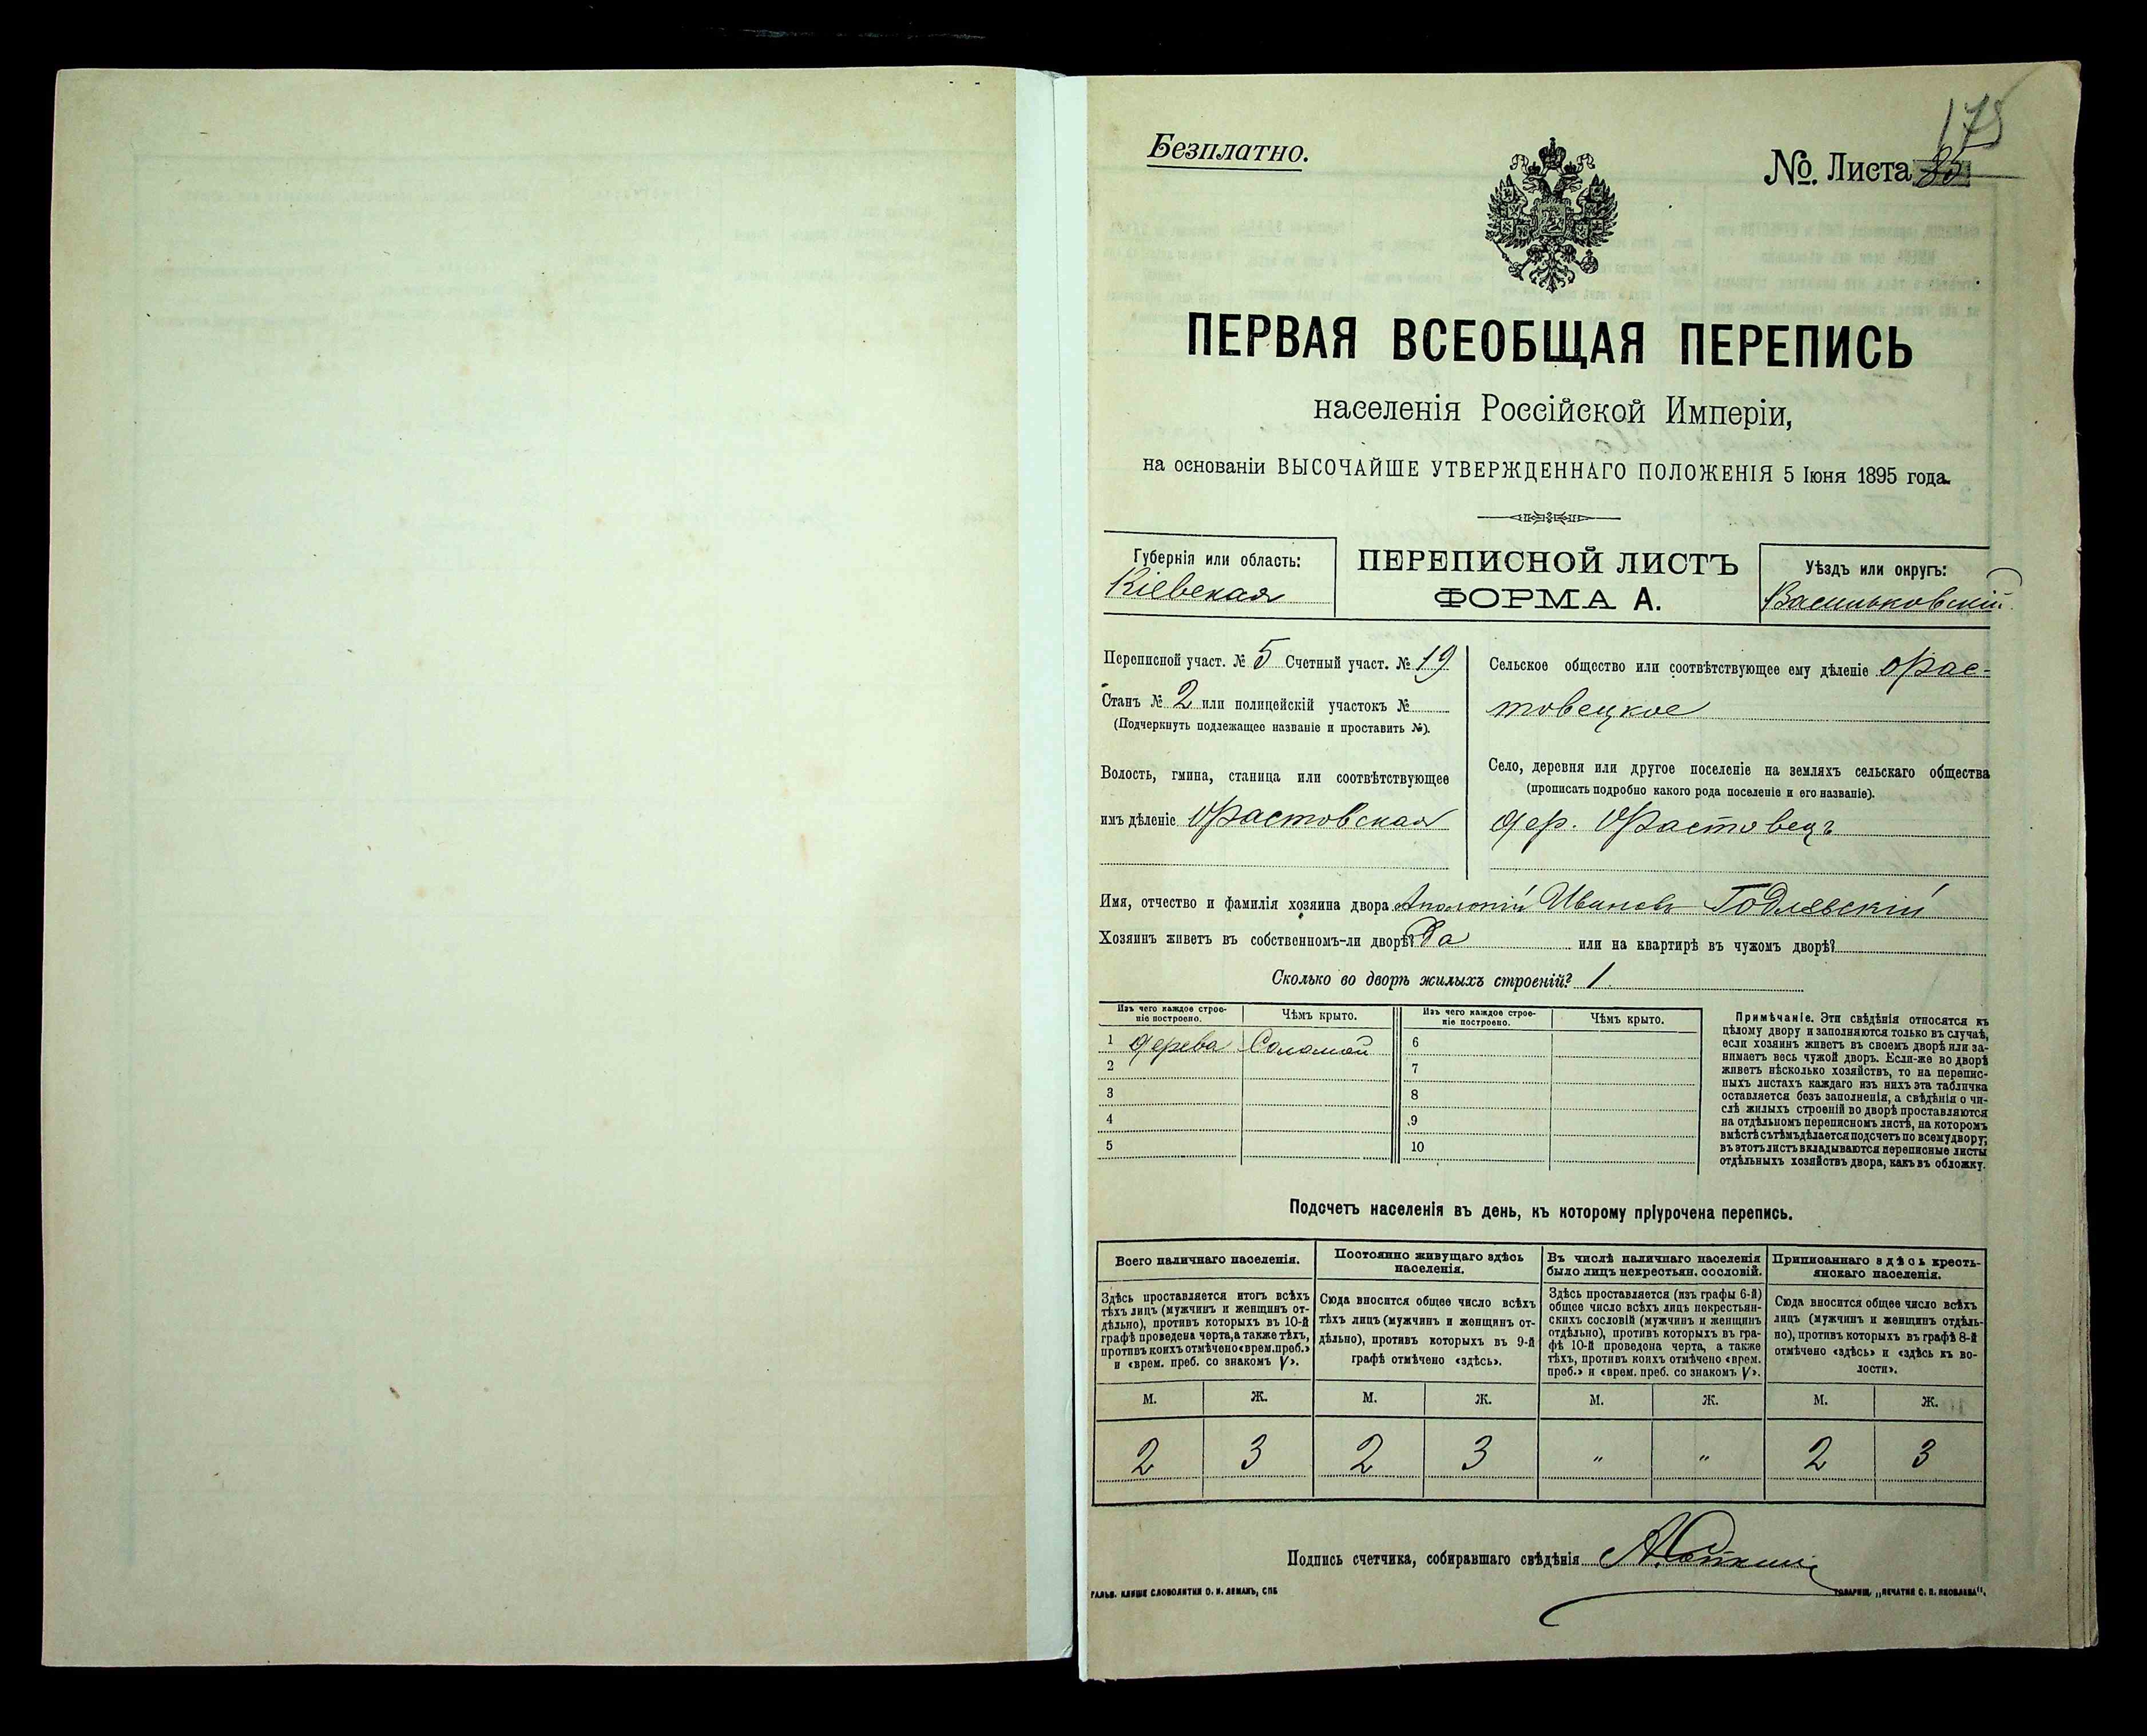 175
Безплатно.
№. Листа 85
ПЕРВАЯ ВСЕОБЩАЯ ПЕРЕПИСЬ
населенія Россійской Имперіи,
на основаніи ВЫСОЧАЙШЕ УТВЕРЖДЕННАГО ПОЛОЖЕНІЯ 5 Іюня 1895 года.
Губернія или область:
Кіевская
ПЕРЕПИСНОЙ ЛИСТЪ
ФОРМА А.
Уѣздъ или округъ:
Васильковскій
Переписной участ. № 5 Счетный участ. № 19
Станъ № 2 или полицейскій участокъ №
(Подчеркнуть подлежащее названіе и проставить №).
Волость, гмина, станица или соотвѣтствующее
имъ дѣленіе Фастовская
Сельское общество или соотвѣтствующее ему дѣленіе Фас-
товецкое
Село, деревня или другое поселеніе на земляхъ сельскаго общества
(прописать подробно какого рода поселеніе и его названіе).
дер. Фастовецъ
Имя, отчество и фамилія хозяина двора Иванов Годлевскій
Хозяинъ живетъ въ собственномъ-ли дворѣ? Да или на квартирѣ въ чужомъ дворѣ?
Сколько во дворѣ жилыхъ строеній? 1
Изъ чего каждое строе-
ніе построено.
Чѣмъ крыто.
Изъ чего каждое строе-
ніе построено.
Чѣмъ крыто.
1 дерева Соломой 6
2 7
3 8
4 9
5 10
Примѣчаніе. Эти свѣдѣнія относятся къ
цѣлому двору и заполняются только въ случаѣ,
если хозяинъ живетъ въ своемъ дворѣ или за-
нимаетъ весь чужой дворъ. Если-же во дворѣ
живетъ нѣсколько хозяйствъ, то на перепис-
ныхъ листахъ каждаго изъ нихъ эта табличка
оставляется безъ заполненія, а свѣдѣнія о чи-
слѣ жилыхъ строеній во дворѣ проставляются
на отдѣльномъ переписномъ листѣ, на которомъ
вмѣстѣ съ тѣмъ дѣлается подсчетъ по всему двору;
въ этотъ листъ вкладываются переписные листы
отдѣльныхъ хозяйствъ двора, какъ въ обложку.
Подсчетъ населенія въ день, къ которому пріурочена перепись.
Всего наличнаго населенія.
Здѣсь проставляется итогъ всѣхъ
тѣхъ лицъ (мужчинъ и женщинъ от-
дѣльно), противъ которыхъ въ 10-й
графѣ проведена черта, а также тѣхъ,
противъ коихъ отмѣчено «врем. преб.»
и «врем. преб. со знакомъ V».
Постоянно живущаго здѣсь
населенія.
Сюда вносится общее число всѣхъ
тѣхъ лицъ (мужчинъ и женщинъ от-
дѣльно), противъ которыхъ въ 9-й
графѣ отмѣчено «здѣсь».
Въ числѣ наличнаго населенія
было лицъ некрестьян. сословій.
Здѣсь проставляется (изъ графы 6-й)
общее число всѣхъ лицъ некрестьян-
скихъ сословій (мужчинъ и женщинъ
отдѣльно), противъ которыхъ въ гра-
фѣ 10-й проведена черта, а также
тѣхъ, противъ коихъ отмѣчено «врем.
преб.» и «врем. преб. со знакомъ V».
Приписаннаго здѣсь кресть-
янскаго населенія.
Сюда вносится общее число всѣхъ
лицъ (мужчинъ и женщинъ отдѣль-
но), противъ которыхъ въ графѣ 8-й
отмѣчено «здѣсь» и «здѣсь къ во-
лости».
М. Ж. М. Ж. М. Ж. М. Ж.
2 3 2 3 " " 2 3
Подпись счетчика, собиравшаго свѣдѣнія
ГАЛЬВ. КЛИШЕ СЛОВОЛИТНИ О. И. ЛЕМАНЪ, СПБ
ТОВАРИЩ. „ПЕЧАТНЯ С. П. ЯКОВЛЕВА".